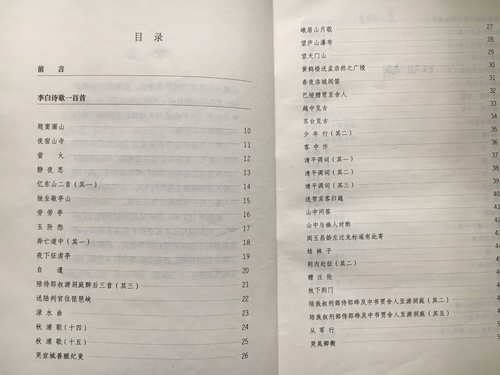 目 录
前 言
李白诗歌一百首
题窦圌山 10
夜宿山寺 11
萤 火 12
静夜思 13
忆东山二首(其一) 14
独坐敬亭山 15
劳劳亭 16
玉阶怨 17
奔亡道中(其一) 18
夜下征虏亭 19
自 遣 20
陪侍郎叔游洞庭醉后三首(其三) 21
送陆判官往琵琶峡 22
渌水曲 23
秋浦歌(十四) 24
秋浦歌(十五) 25
哭宣城善酿纪叟 26
峨眉山月歌 27
望庐山瀑布 28
望天门山 29
黄鹤楼送孟浩然之广陵 30
春夜洛城闻笛 31
巴陵赠贾至舍人 32
越中览古 33
苏台览古 34
少年行(其二) 35
客中作 36
清平调词(其一) 37
清平调词(其二)
清平调词(其三)
送贺宾客归越
山中问答
山中与幽人对酌
闻王昌龄左迁龙标遥有此寄
结袜子
荆州歌
赠汪伦
秋下荆门
陪族叔刑部侍郎晔及中书贾舍人至游洞庭(其二)
陪族叔刑部侍郎晔及中书贾舍人至游洞庭(其五)
从军行
哭晁卿衡